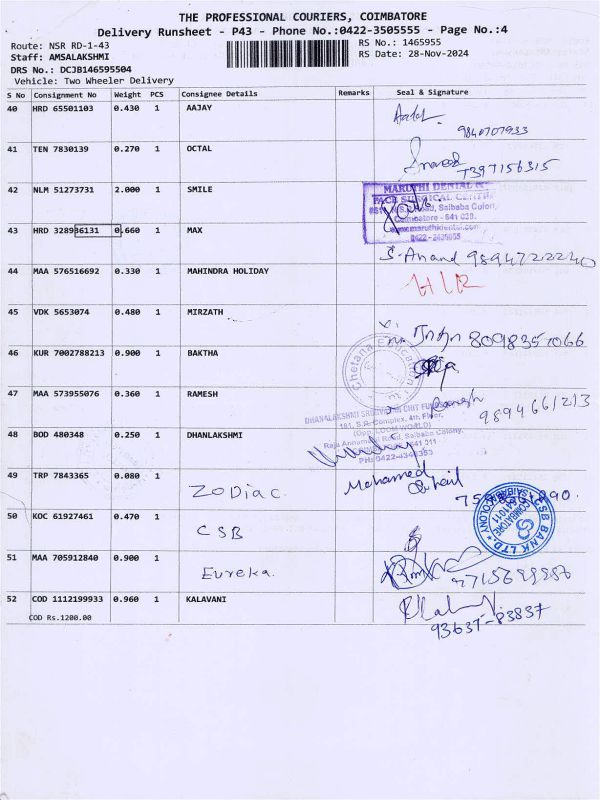 THE PROFESSIONAL COURIERS, COIMBATORE
Delivery Runsheet - P43 - Phone No.:0422-3505555 - Page No.:4
Route: NSR RD-1-43
RS No.: 1465955
Staff: AMSALAKSHMI
RS Date: 28-Nov-2024
DRS No.: DCJB146595504
Vehicle: Two Wheeler Delivery
S No Consignment No Weight PCS Consignee Details Remarks Seal & Signature
40 HRD 65501103 0.430 1 AAJAY
9840707933
41 TEN 7830139 0.270 1 OCTAL
7397156315
42 NLM 51273731 2.000 1 SMILE
MARUTHI DENTAL
FACE SURGICAL CENTRE
Road, Saibaba Colony,
Coimbatore - 641 038.
0422-2435055
43 HRD 328936131 0.660 1 MAX
S. Anand 98947222240
44 MAA 576516692 0.330 1 MAHINDRA HOLIDAY
45 VDK 5653074 0.480 1 MIRZATH
8098357066
46 KUR 7002788213 0.900 1 BAKTHA
Chetana Education
47 MAA 573955076 0.360 1 RAMESH
Ramesh 9894661213
DHANALAKSHMI SRINIVASAN CHIT FUNDS
181, S.R. Complex, 4th Floor,
(Opp. LOOM WORLD)
Raja Annamalai Road, Saibaba Colony,
48 BOD 480348 0.250 1 DHANLAKSHMI
49 TRP 7843365 0.080 1 ZODiac
Mohamed
50 KOC 61927461 0.470 1 CSB
CSB BANK LTD
SAIBABA COLONY
COIMBATORE
641011
51 MAA 705912840 0.900 1 Eureka.
52 COD 1112199933 0.960 1 KALAVANI
93637-83837
COD Rs.1200.00